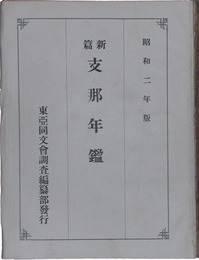 昭和二年版
新篇
支那年鑑
東亞同文會調查編纂部發行